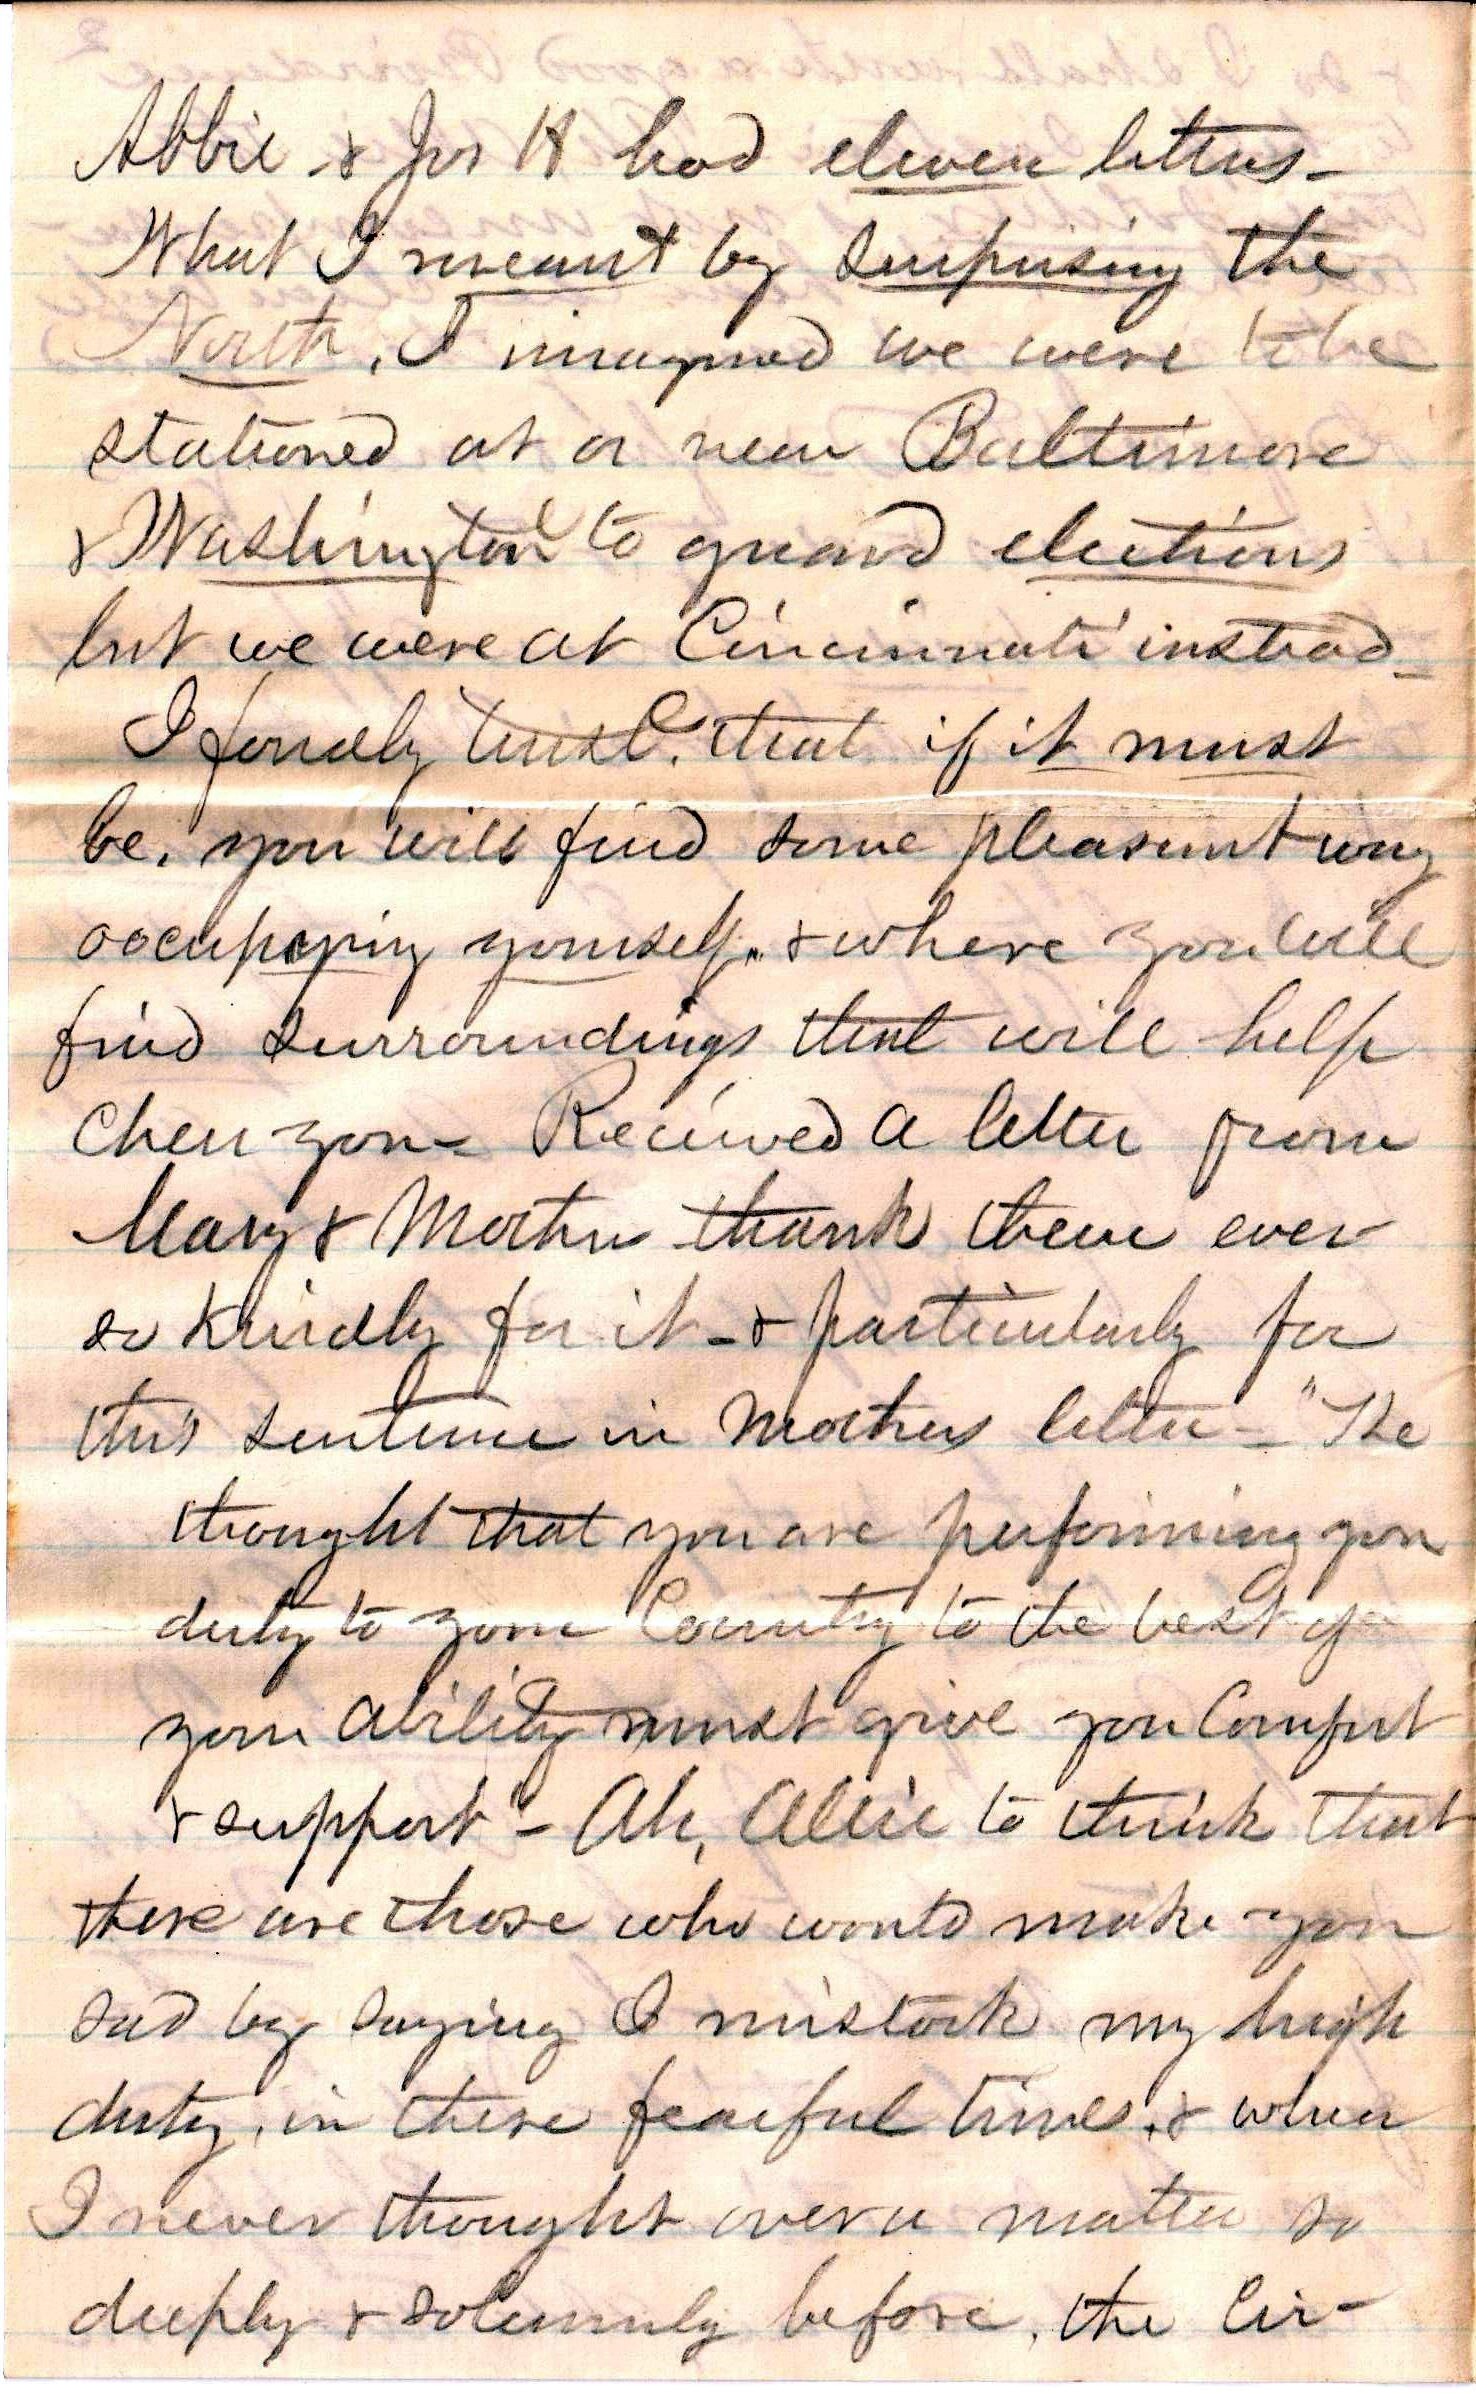 Abbie & Jos H had eleven letters -
What I meant by surprising the
North, I imagined we were to be
stationed at or near Baltimore
& Washington to guard elections
but we were at Cincinnati instead -
I fondly trust, that if it must
be, you will find some pleasant way
occupying yourself, & where you will
find surroundings that will help
cheer you - Received a letter from
Mary & Mother thank them ever
so kindly for it - & particularly for
this sentence in Mothers letter - "The
thought that you are performing your
duty to your Country to the best of
your ability must give you comfort
& support" - Ah, Allie to think that
there are those who would make you
sad by saying I mistook my high
duty, in these fearful times, & when
I never thought over a matter so
deeply & solemnly before, the Cir-